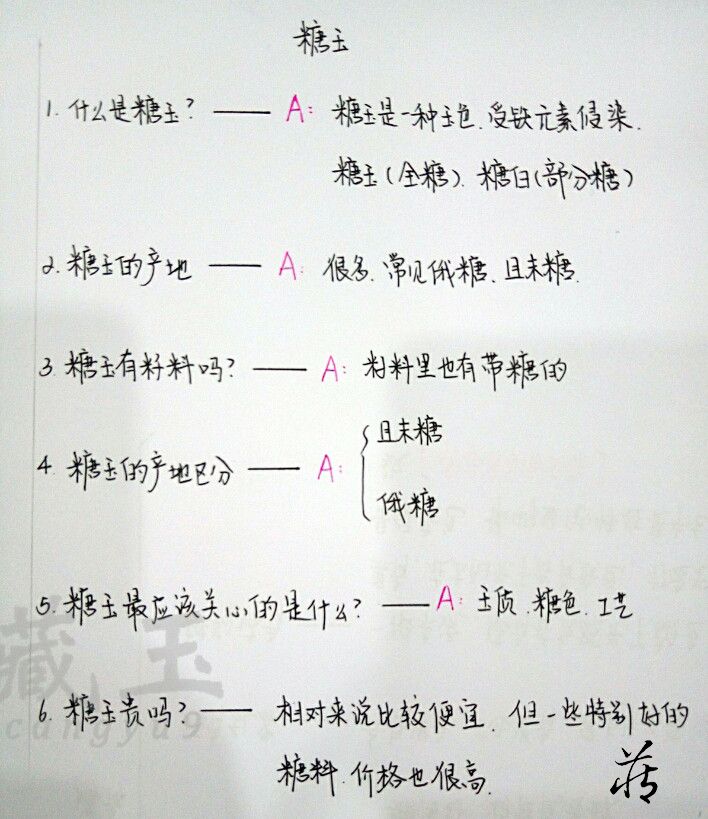 糖玉
1. 什么是糖玉? —— A: 糖玉是一种玉色、受铁元素侵染.
糖玉(全糖)、糖白(部分糖)
2. 糖玉的产地 —— A: 很多、常见俄糖、且末糖.
3. 糖玉有籽料吗? —— A: 籽料里也有带糖的
4. 糖玉的产地区分 —— A: { 且末糖
俄糖
5. 糖玉最应该关心的是什么? —— A: 玉质、糖色、工艺
6. 糖玉贵吗? —— 相对来说比较便宜、但一些特别好的
糖料、价格也很高.
藏玉
cangyu9